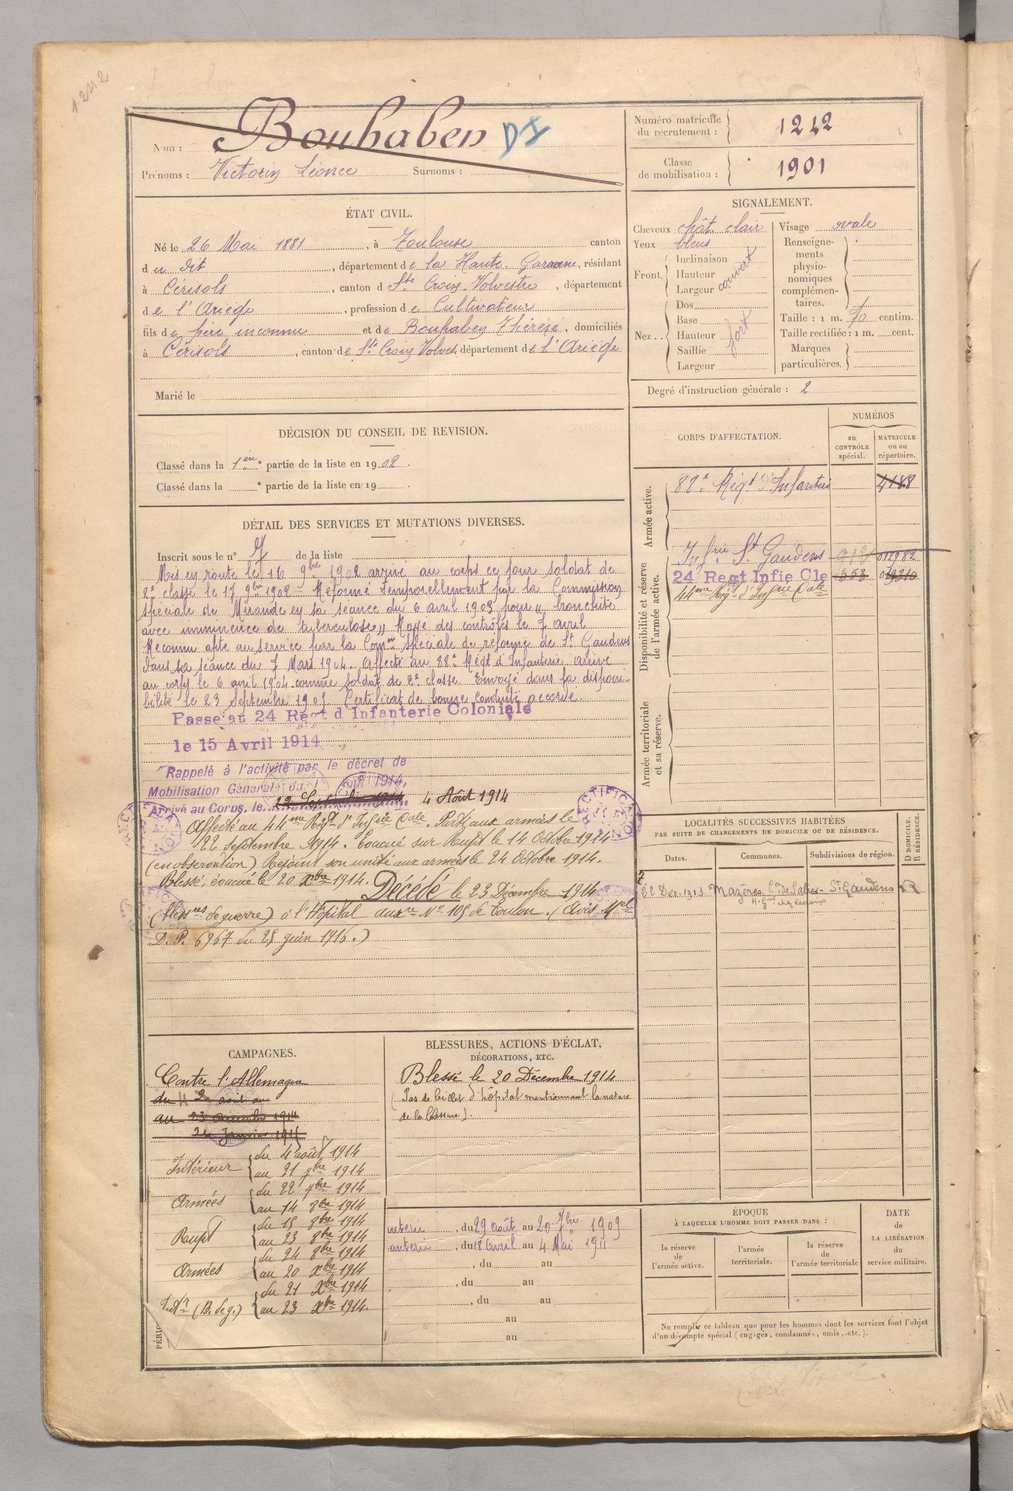 1242
Nom : Bouhaben DI
Prénoms : Victorin Léonce Surnoms :
Numéro matricule du recrutement : 1242
Classe de mobilisation : 1901
ÉTAT CIVIL.
Né le 26 Mai 1881, à Toulouse canton
du dit, département de la Haute-Garonne, résidant
à Cérisols, canton de Ste Croix Volvestre, département
de l'Ariège, profession de Cultivateur
fils de père inconnu et de Bouhaben Thérèse, domiciliés
à Cérisols, canton de Ste Croix Volves, département de l'Ariège
Marié le
SIGNALEMENT.
Cheveux chât. clair
Yeux bleus
Front. Inclinaison
Hauteur
Largeur
couvert
Nez.. Dos
Base
Hauteur
Saillie
Largeur
fort
Visage ovale
Renseignements physionomiques complémentaires.
Taille : 1 m. 70 centim.
Taille rectifiée : 1 m. cent.
Marques particulières.
Degré d'instruction générale : 2
DÉCISION DU CONSEIL DE REVISION.
Classé dans la 1ère partie de la liste en 1902.
Classé dans la e partie de la liste en 19
CORPS D'AFFECTATION.
NUMÉROS
au CONTRÔLE spécial.
MATRICULE ou au répertoire.
Armée active.
88e Régt d'Infanterie 4188
Disponibilité et réserve de l'armée active.
Infrie St Gaudens
24 Regt Infie Cle
44me Régt d'Infrie Cale
Armée territoriale et sa réserve.
DÉTAIL DES SERVICES ET MUTATIONS DIVERSES.
Inscrit sous le n° de la liste
Mis en route le 16 9bre 1902 arrivé au corps ce jour soldat de
2e classe le 17 9bre 1902 - Réformé temporellement par la Commission
spéciale de Mirande en sa séance du 6 avril 1903 pour "bronchite
avec imminence de tuberculose" Rayé des contrôles le 7 avril
Reconnu apte au service par la Comon spéciale de réforme de St Gaudens
dans sa séance du 7 Mars 1904. Affecté au 88e Régt d'Infanterie arrivé
au corps le 6 avril 1904 comme soldat de 2e classe. Envoyé dans la disponi-
bilité le 23 Septembre 1905 Certificat de bonne conduite accordé.
Passe au 24 Régt d Infanterie Coloniale
le 15 Avril 1914
Rappelé à l'activité par le décret de
Mobilisation Générale du Août 1914,
Arrivé au Corps, le 4 Août 1914
Affecté au 44me Régt d'Infrie Cale. Parti aux armées le
22 septembre 1914. Evacué sur Rupt le 14 Octobre 1914
(en observation) Rejoint son unité aux armées le 24 Octobre 1914.
Blessé, évacué le 20 Xbre 1914. Décédé le 23 Décembre 1914
(bless.res de guerre) à l'Hôpital auxre N° 105 de Toulon. (Avis Mel
D.P. 6967 du 25 juin 1916.)
RECTIFICATION
LOCALITÉS SUCCESSIVES HABITÉES
PAR SUITE DE CHANGEMENTS DE DOMICILE OU DE RÉSIDENCE.
Dates.
Communes.
Subdivisions de région.
D DOMICILE. R RÉSIDENCE.
22 Déc. 1913 Mazères Cn De Salies St Gaudens R
CAMPAGNES.
Contre l'Allemagne
du 2 août au
au 23 décembre 1914
Intérieur du 4 août 1914
au 21 7bre 1914
Armées du 22 7bre 1914
au 14 8bre 1914
Rupt du 15 8bre 1914
au 23 8bre 1914
Armées du 24 8bre 1914
au 20 Xbre 1914
Intr (B. de g.) du 21 Xbre 1914
au 23 Xbre 1914.
BLESSURES, ACTIONS D'ÉCLAT,
DÉCORATIONS, ETC.
Blessé le 20 Décembre 1914
(Pas de billet d'hôpital mentionnant la nature
de la blessure).
du 29 août au 20 7bre 1909
du 18 avril au 4 Mai 1911
, du au
, du au
, du au
au
au
ÉPOQUE
À LAQUELLE L'HOMME DOIT PASSER DANS :
la réserve de l'armée active.
l'armée territoriale.
la réserve de l'armée territoriale
DATE de LA LIBÉRATION du service militaire.
Ne remplir ce tableau que pour les hommes dont les services font l'objet
d'un décompte spécial (engagés, condamnés, omis, etc.).